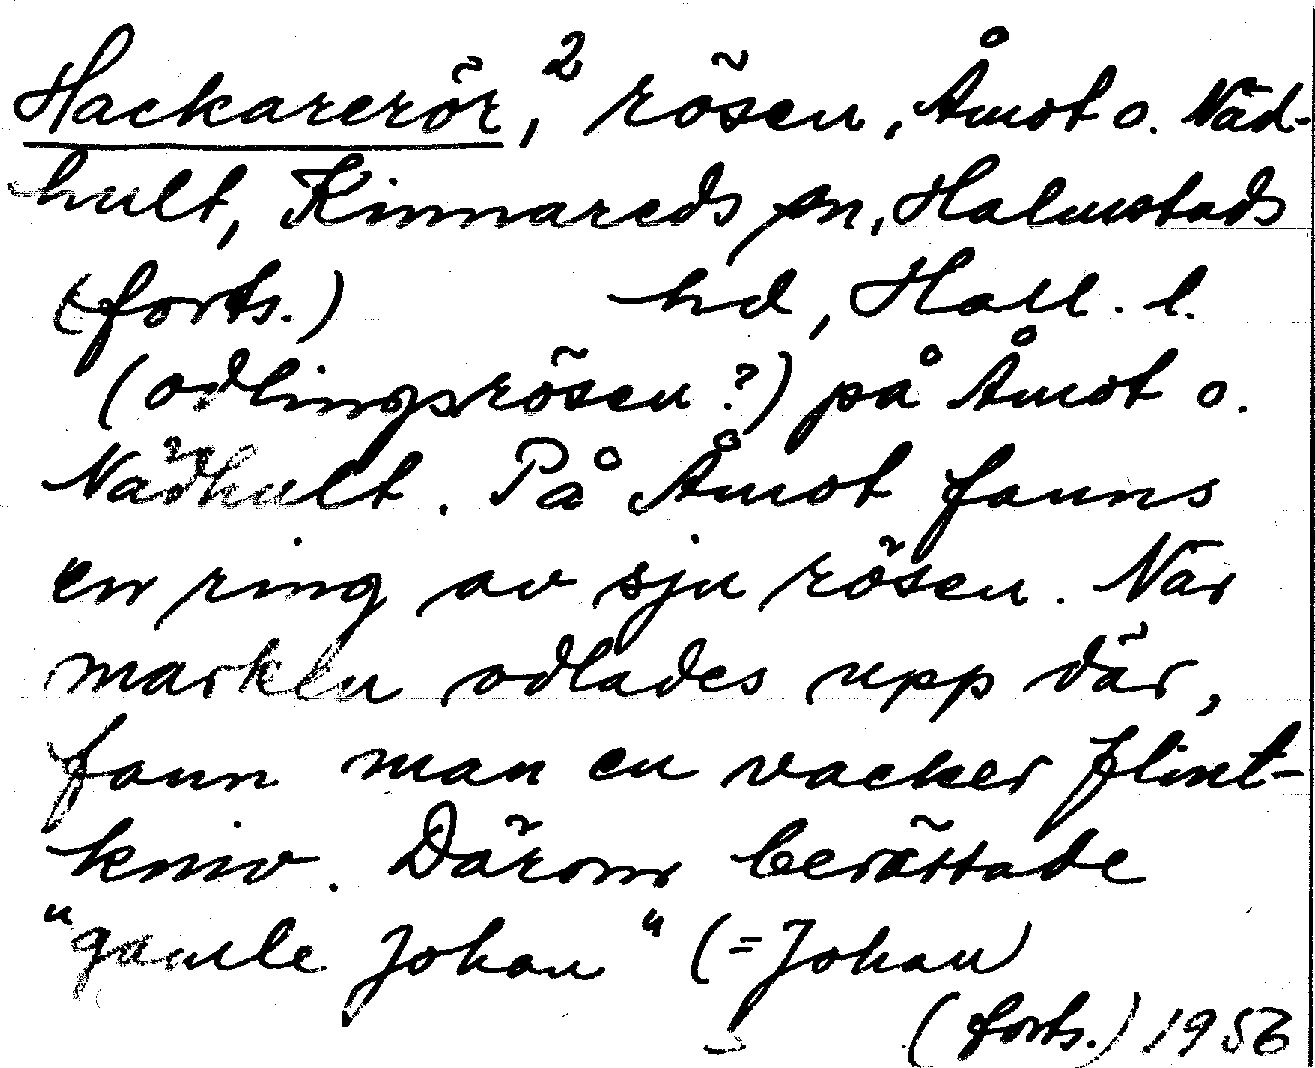 Hackarerör,² rösen, Åmot o. Näd-
hult, Kinnareds sn, Halmstads
(forts.) hd, Hall. l.
(odlingsrösen?) på Åmot o.
Nädhult. På Åmot fanns
en ring av sju rösen. När
marken odlades upp där,
fann man en vacker flint-
kniv. Därom berättade
"gamle Johan" (= Johan
(forts.) 1956